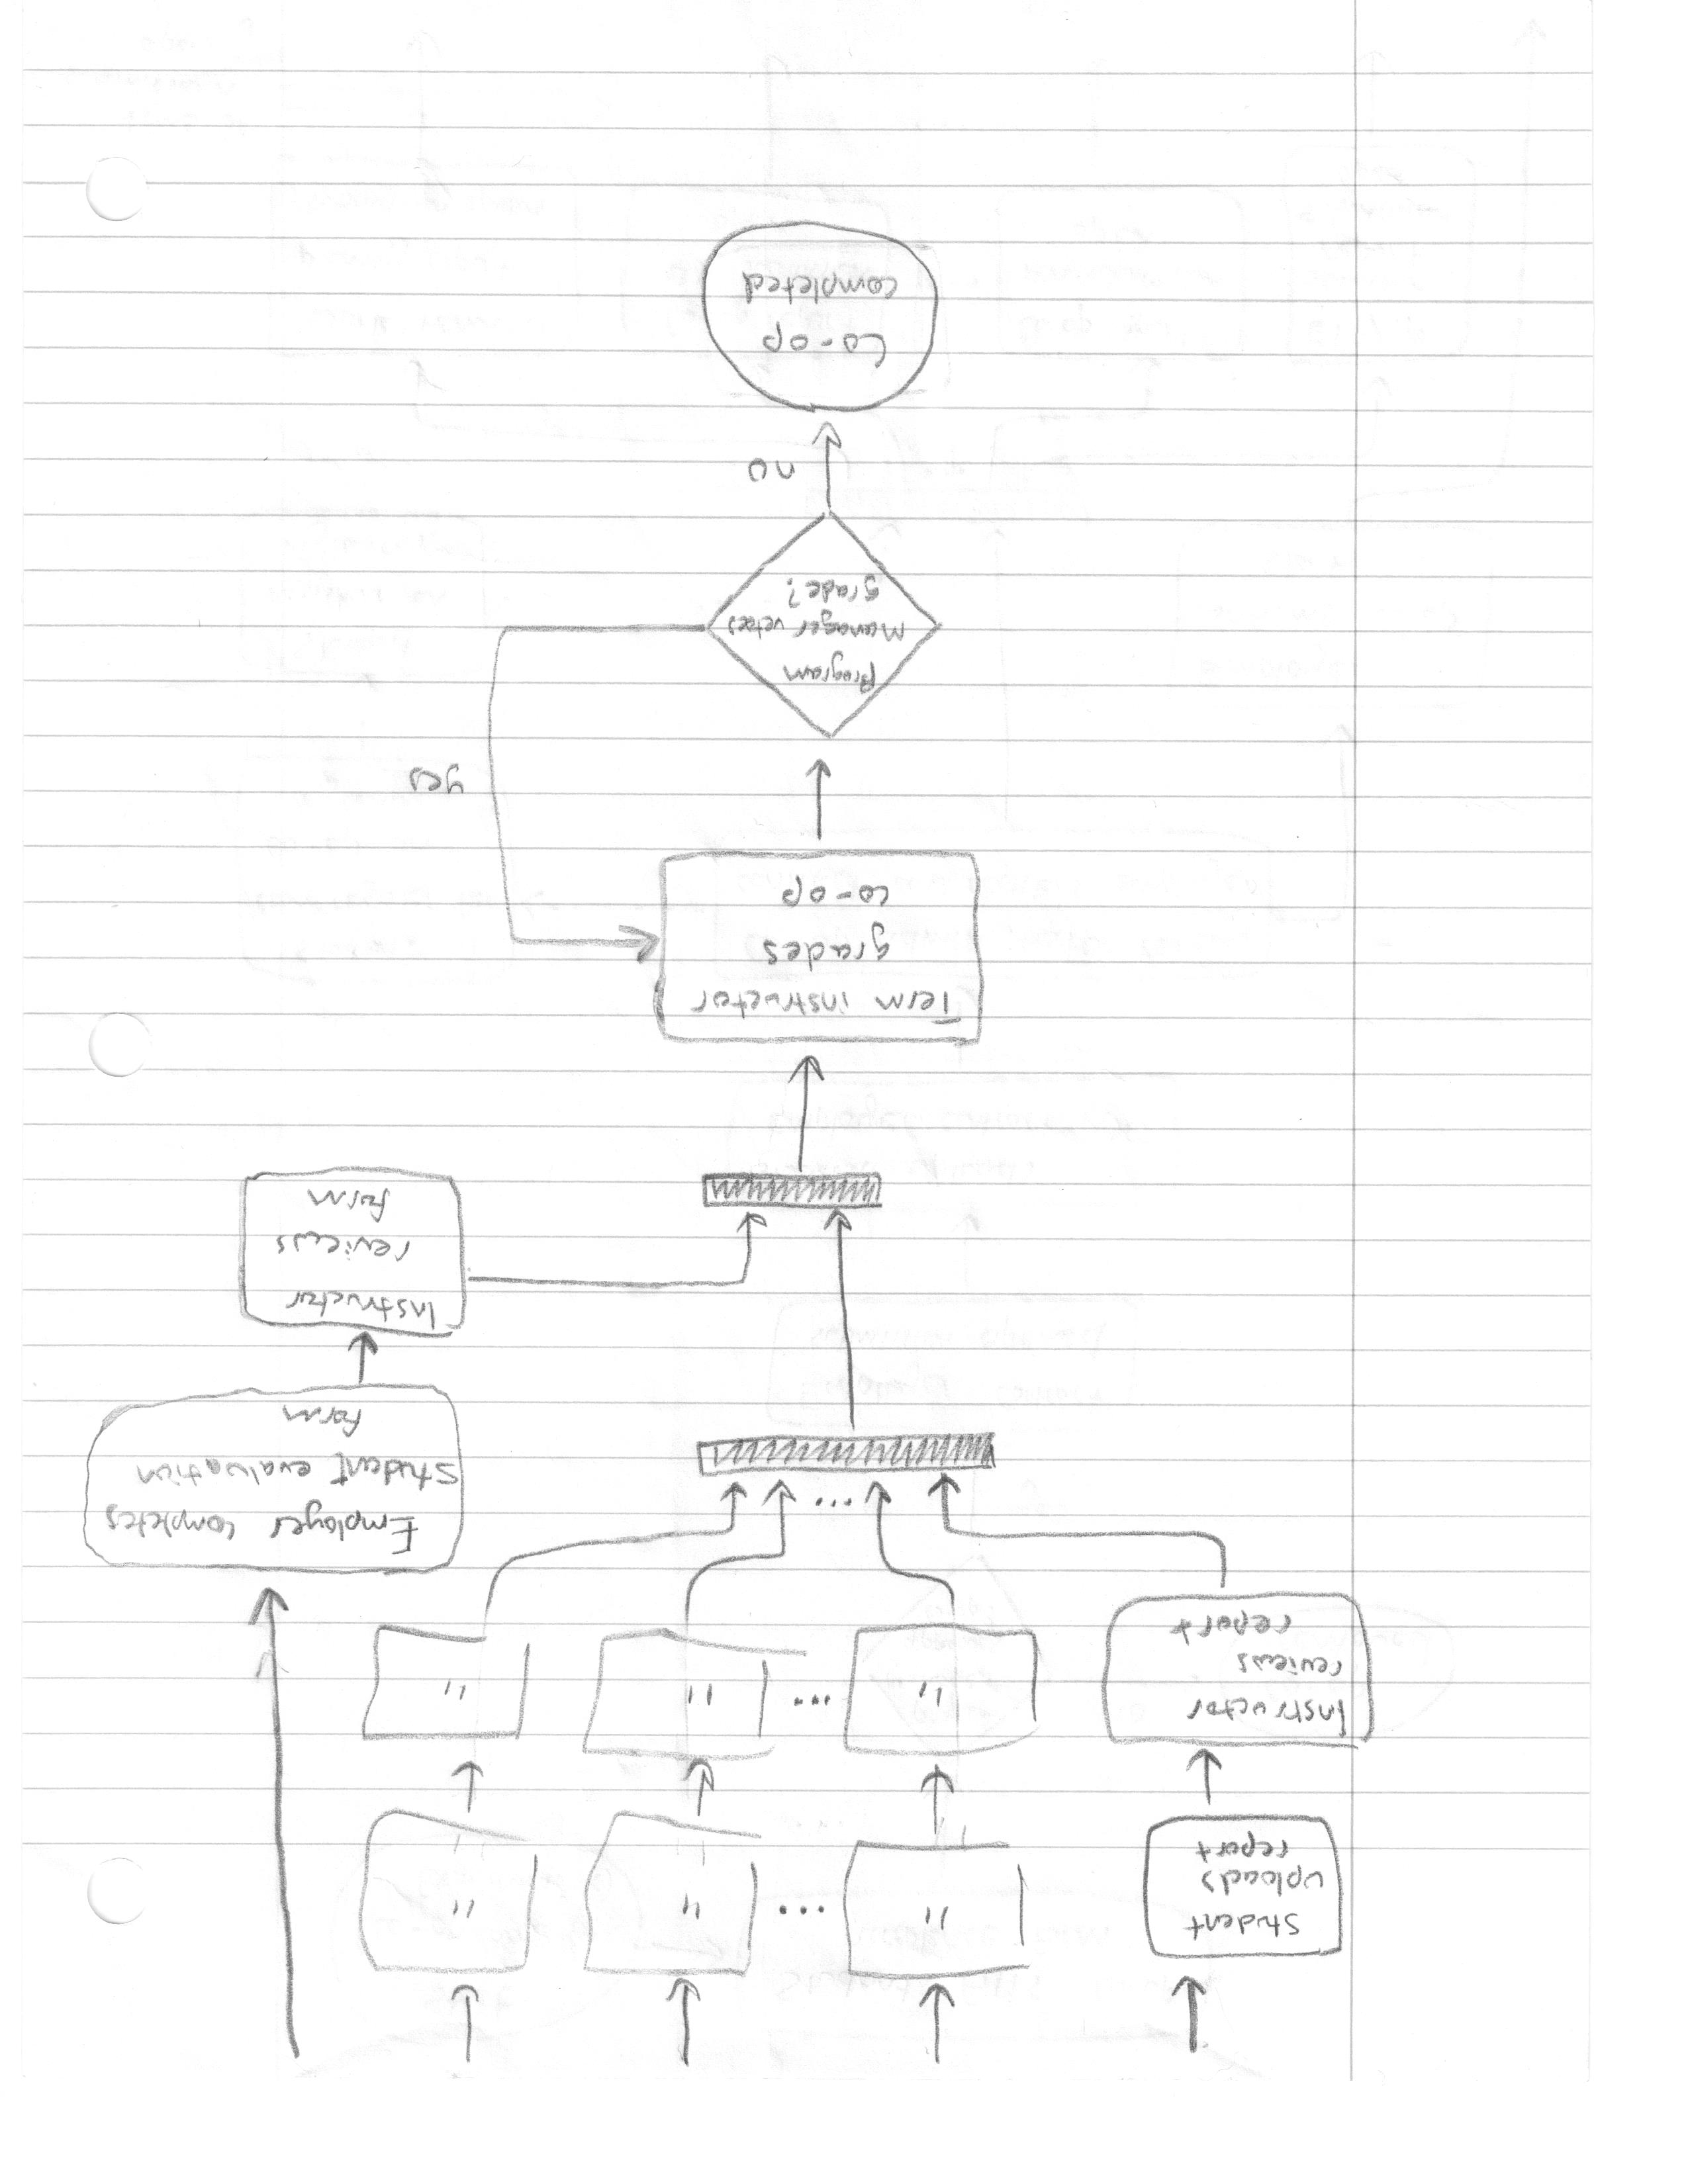 Student
uploads
report
"
...
"
"
Instructor
reviews
report
"
...
"
"
...
Employer completes
Student evaluation
form
Instructor
reviews
form
Term instructor
grades
co-op
yes
Program
Manager vetoes
grade?
no
Co-op
completed